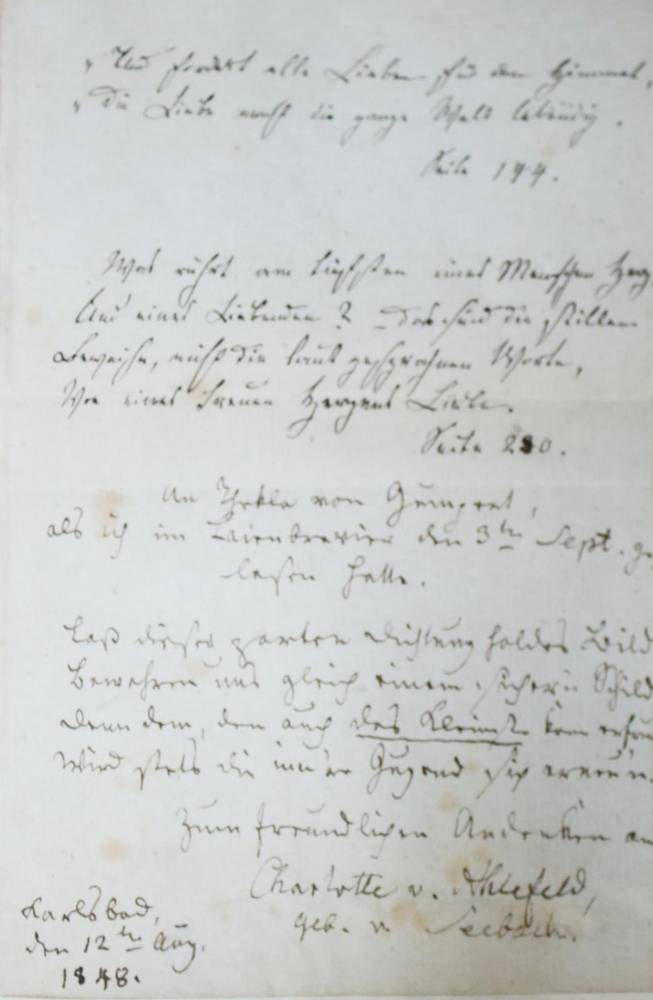 "Und fordert alle Liebe für den Himmel,
"Die Liebe macht die ganze Welt lebendig.
Seite 144.
Was rührt am tiefsten eines Menschen Herz
Und eines Liebenden? – das sind die stillen
Beweise, nicht die laut gesprochnen Worte,
Von eines treuen Herzens Liebe.
Seite 230.
An Thekla von Gumpert,
als ich im Laienbrevier den 3ten Sept. ge
lesen hatte.
Laß dieser zarten Dichtung holdes Bild
Bewahren uns gleich einem sichern Schild
Denn dem, den auch das Kleinste kann
Wird stets die inn're Jugend sich erneu'n.
Zum freundlichen Andenken an
Charlotte v. Ahlefeld,
geb. v. Seebach.
Karlsbad,
den 12ten Aug.
1848.